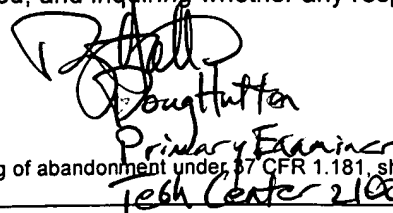 ed, and inquiring whether any resp
Doug Hutton
Primary Examiner
g of abandonment under 37 CFR 1.181, sh
Tech Center 2100